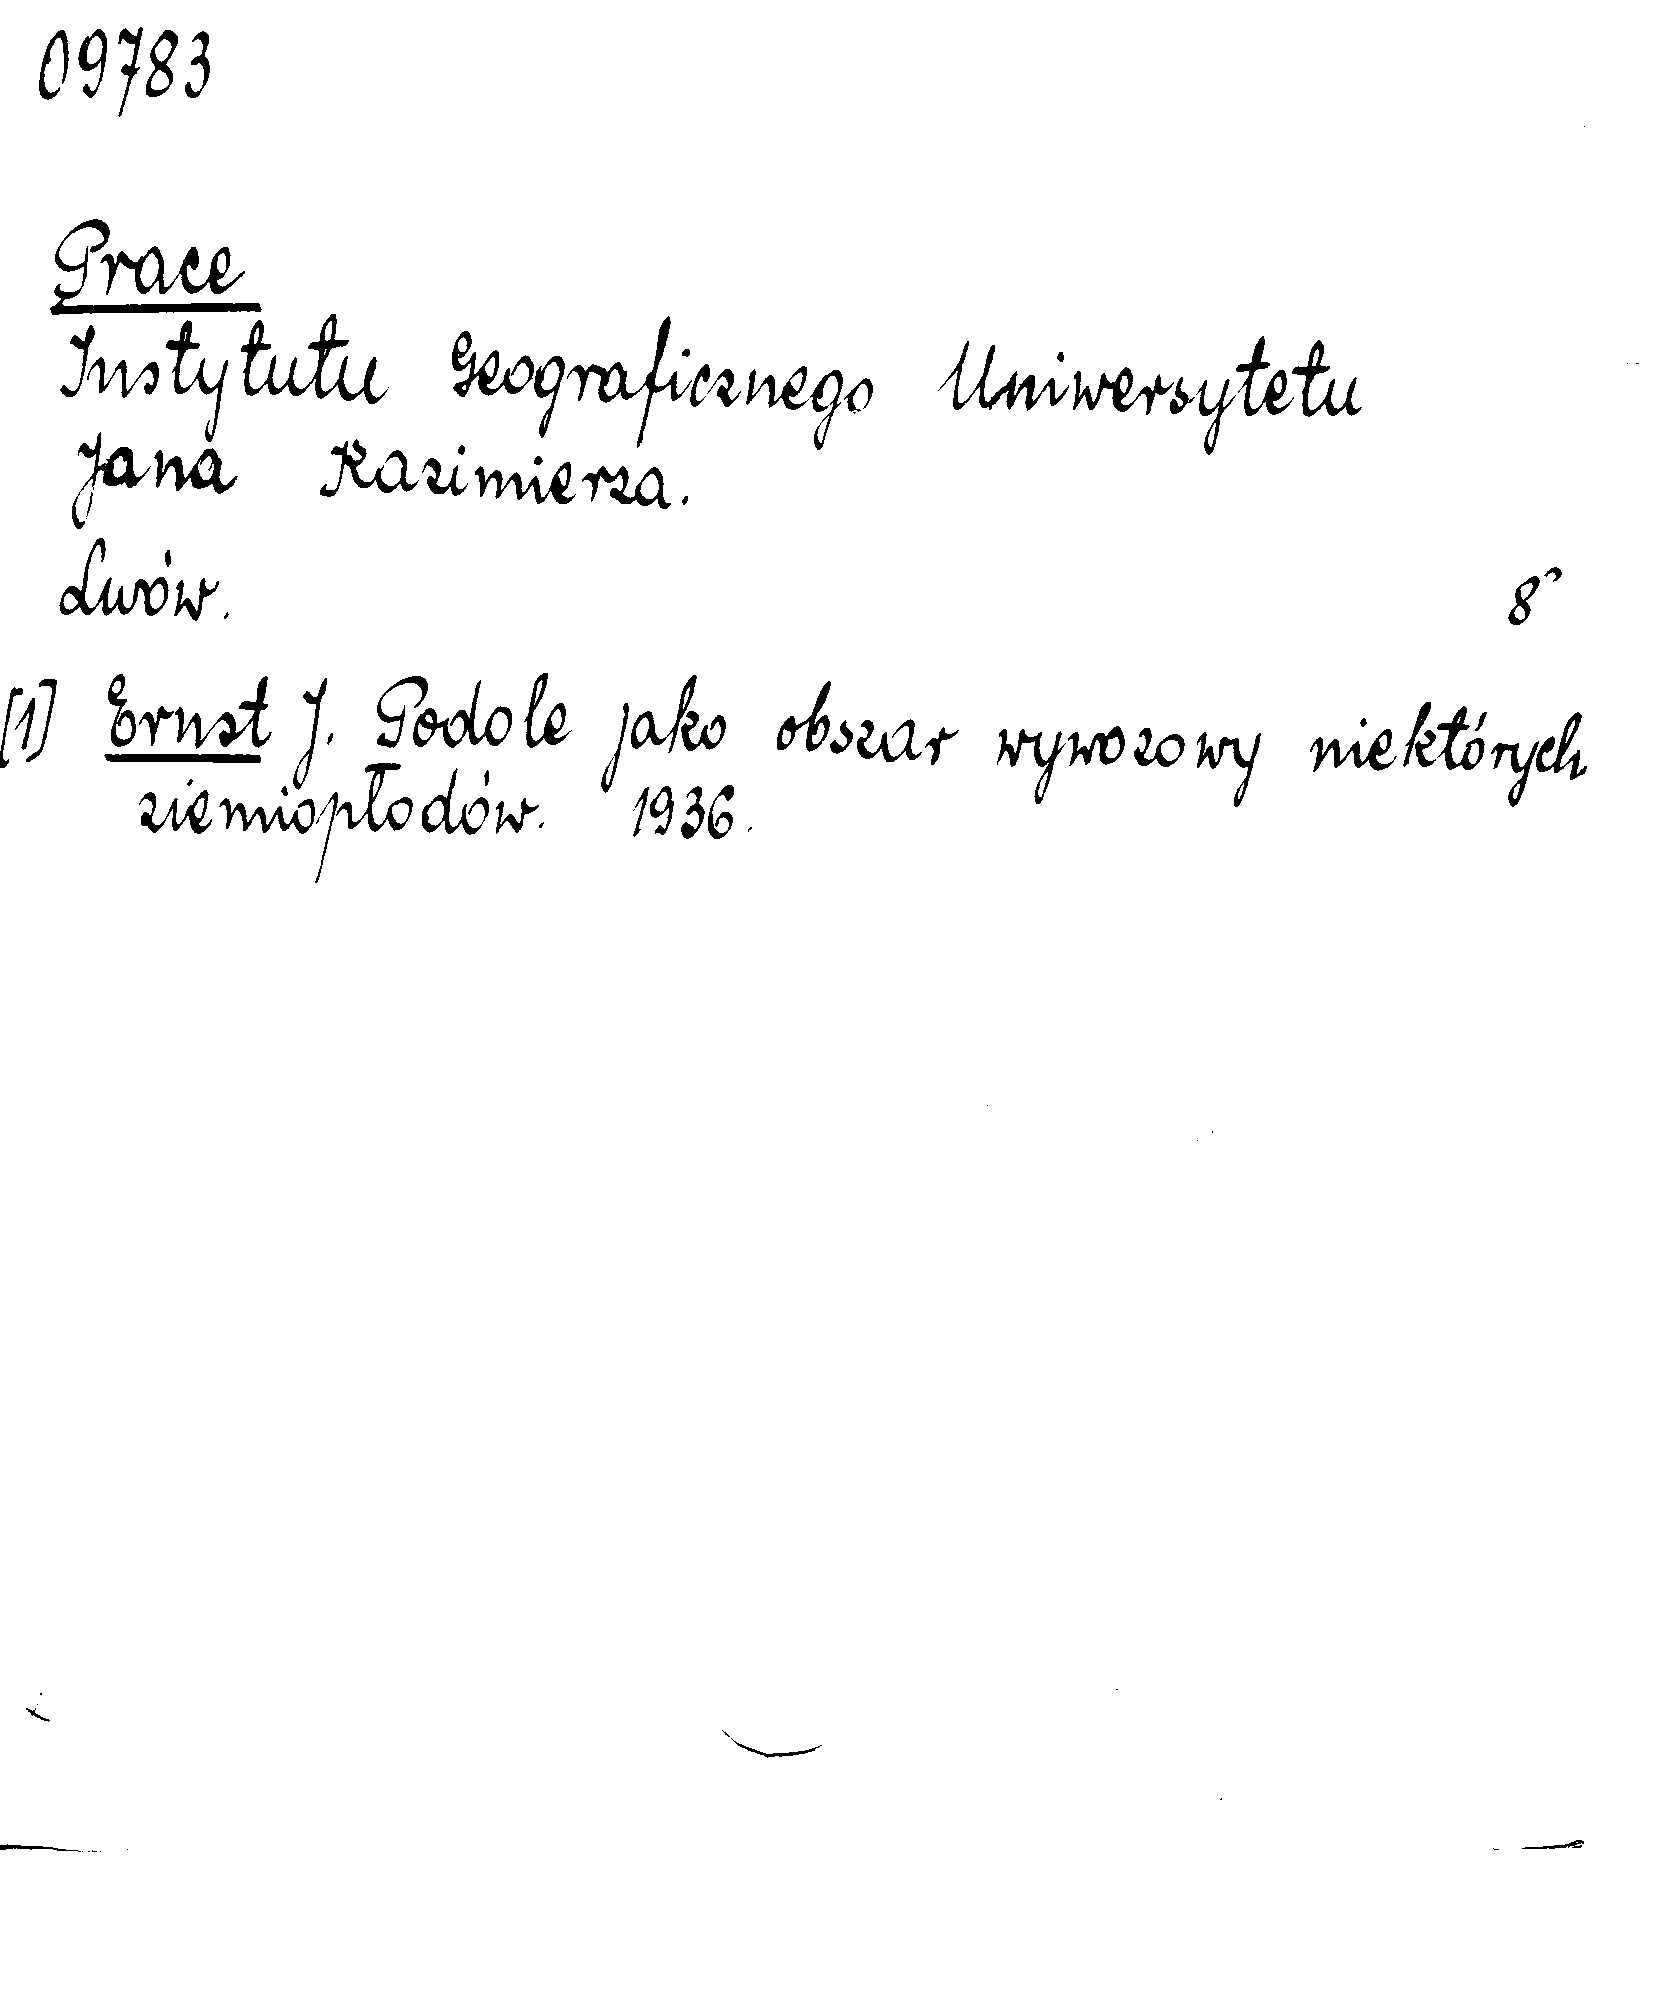 09783
Prace
Instytutu Geograficznego Uniwersytetu
Jana Kazimierza.
Lwów. 8°
[1] Ernst J. Podole jako obszar wywozowy niektórych
ziemiopłodów. 1936.